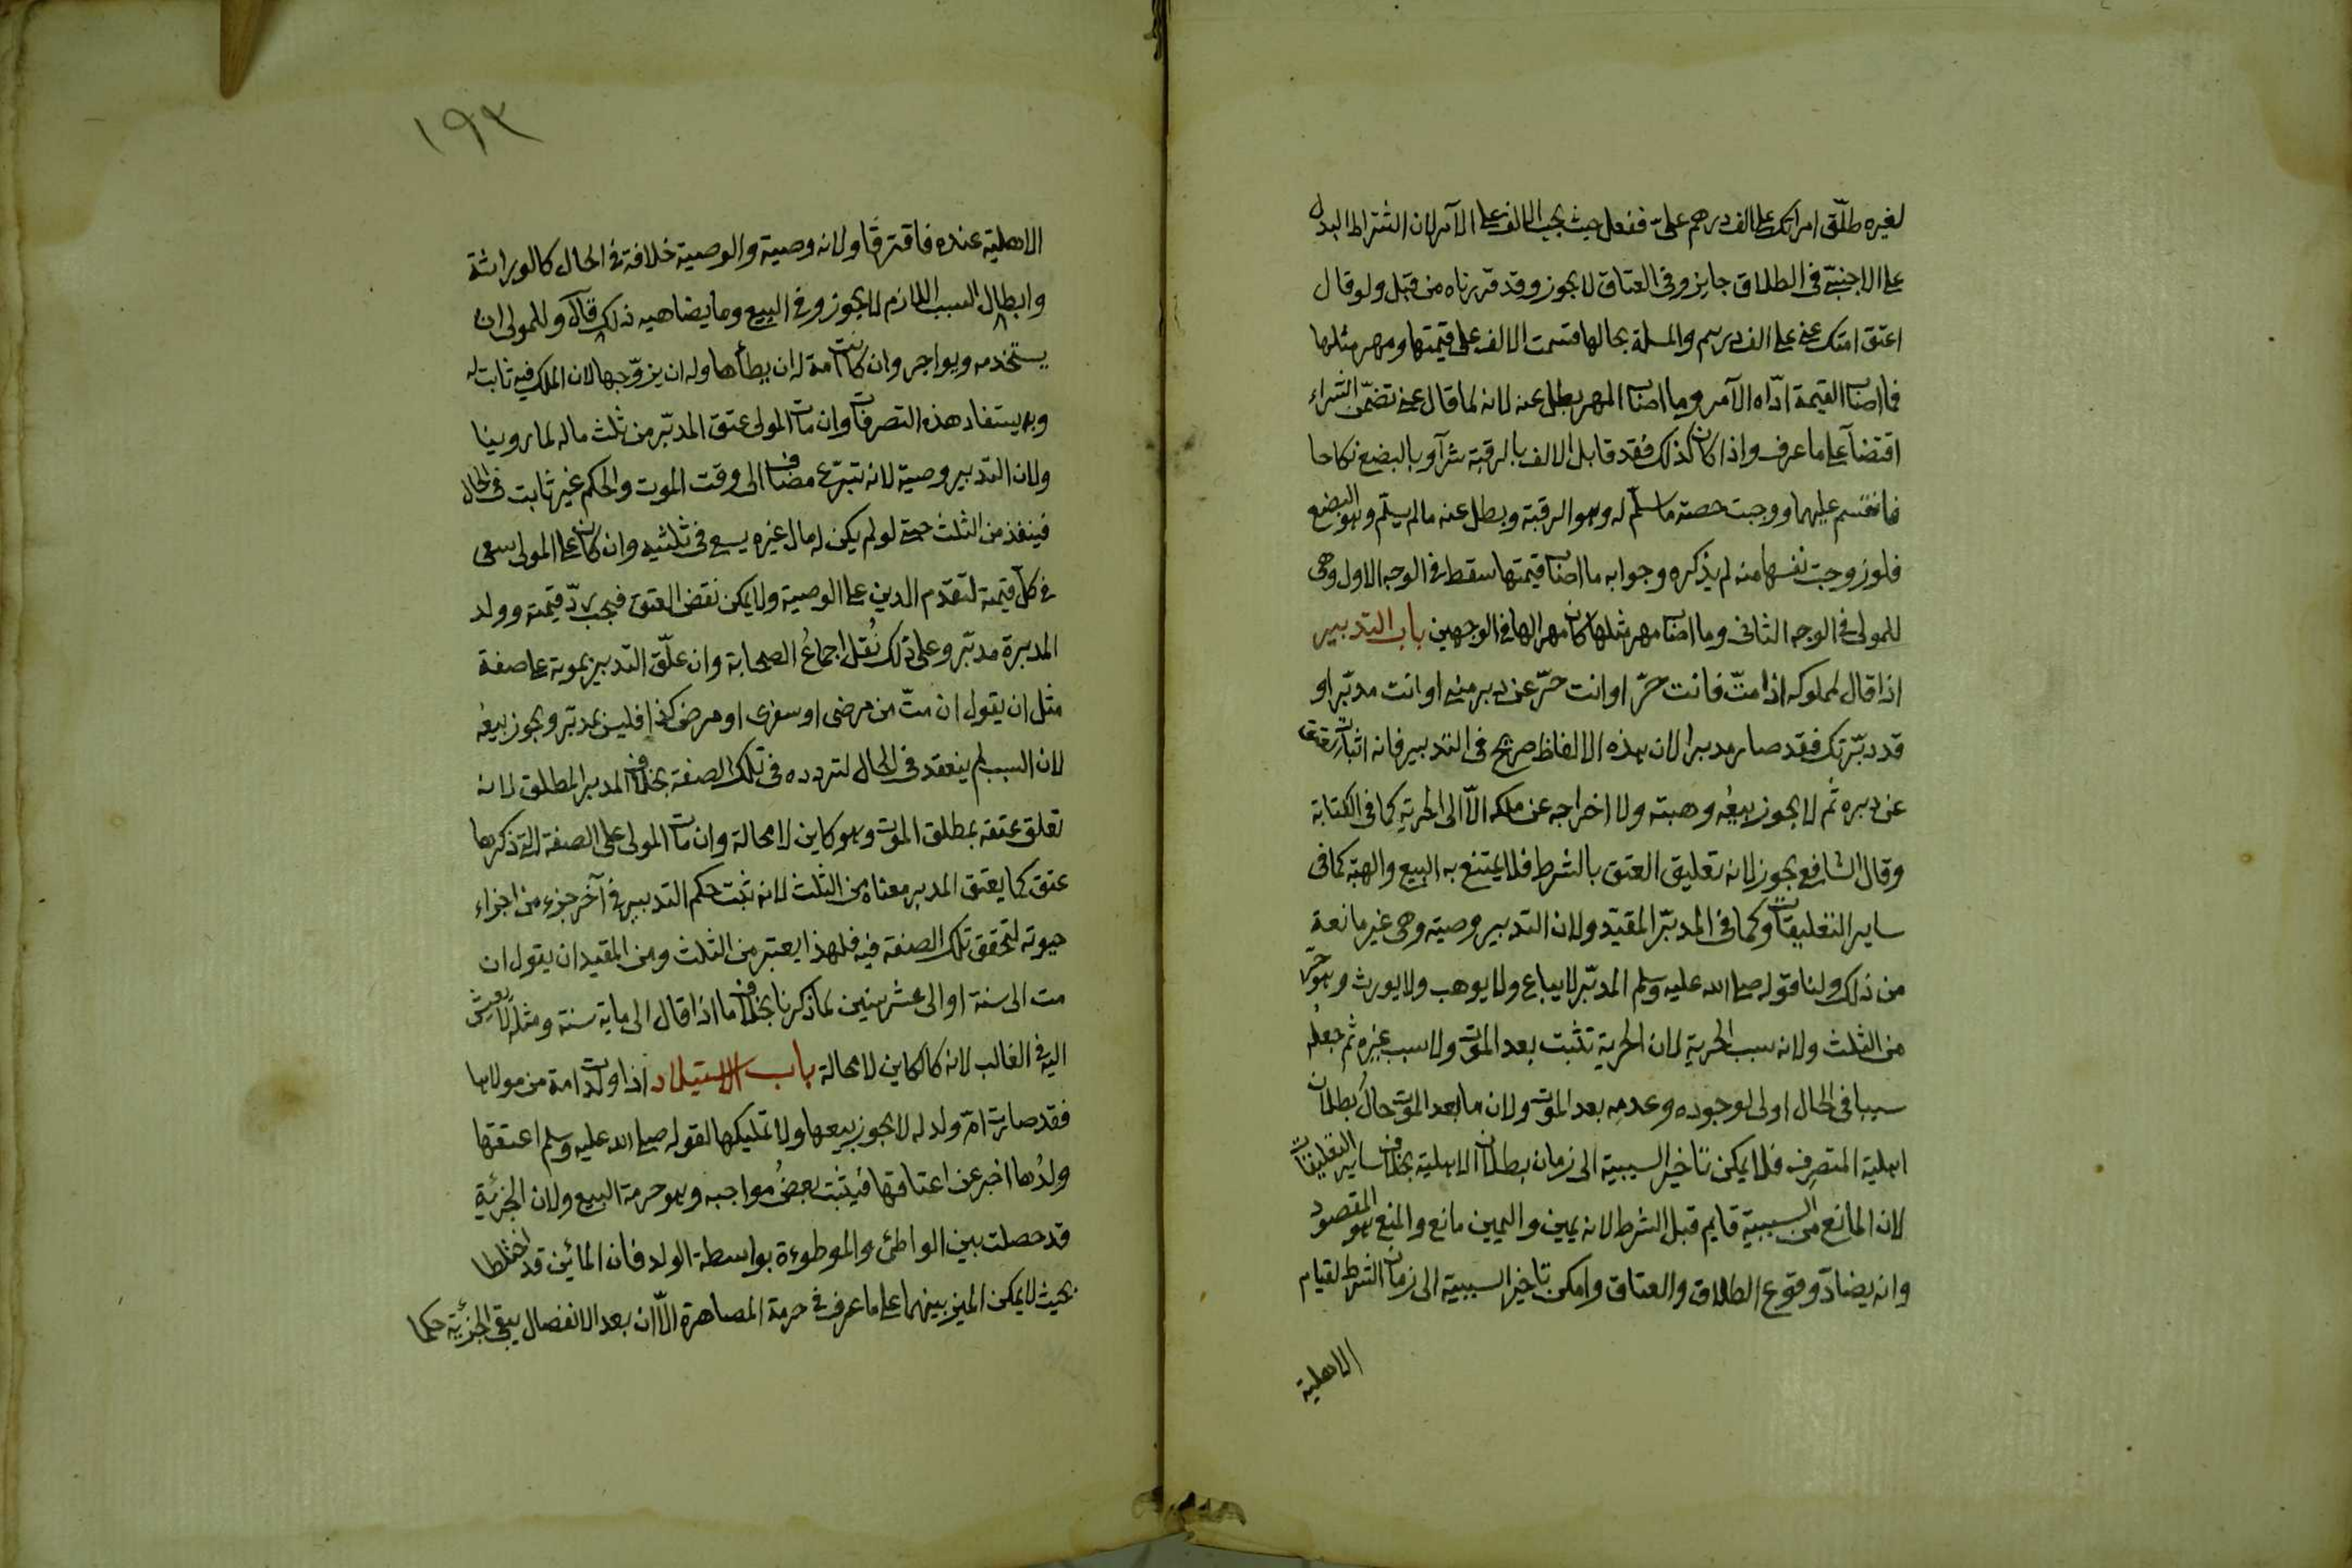 لغيره طلّق امراتك على الف درهم علىّ ففعل حيث يجب الالف على الآمر لان اشتراط البدل
على الاجنبىّ فى الطلاق جايز وفى العتاق لا يجوز وقد قرّرناه من قبل ولو قال
اعتق امتك عنى على الف درهم والمسئلة بحالها قسمت الالف على قيمتها ومهر مثلها
فما اصاب القيمة ادّاه الآمر وما اصاب المهر بطل عنه لانه لما قال عنى تضمّن الشراء
اقتضآء على ما عرف واذا كان كذلك فقد قابل الالف بالرقبة شرآء وبالبضع نكاحا
فانقسم عليهما ووجبت حصة ما سلّم له وهو الرقبة وبطل عنه ما لم يسلّم وهو البضع
فلو زوجت نفسها منه لم يذكره وجوابه ما اصاب قيمتها سقط فى الوجه الاول وهى
للمولى فى الوجه الثانى وما اصاب مهر مثلها كان مهرا لها فى الوجهين باب التدبير
اذا قال لمملوكه اذا متّ فانت حرّ او انت حرّ عن دبر منى او انت مدبّر او
قد دبّرتك فقد صار مدبرا لان هذه الالفاظ صريح فى التدبير فانه اثبات العتق
عن دبره ثم لا يجوز بيعُه وهبته ولا اخراجه عن ملكه الّا الى الحرية كما فى الكتابة
وقال الشافعى يجوز لانه تعليق العتق بالشرط فلا يمتنع به البيع والهبة كما فى
ساير التعليقات وكما فى المدبّر المقيّد ولان التدبير وصية وهى غير مانعة
من ذلك ولنا قوله صلى الله عليه وسلم المدبّر لا يباع ولا يوهب ولا يورث وهو حرّ
من الثلث ولانه سبب الحرية لان الحرية تثبت بعد الموت ولا سبب غيره ثم جعلُه
سببا فى الحال اولى لوجوده وعدمه بعد الموت ولان ما بعد الموت حالُ بطلان
اهلية التصرف فلا يمكن تاخير السببية الى زمان بطلان الاهلية بخلاف ساير التعليقات
لان المانع من السببية قايم قبل الشرط لانه يمين واليمين مانع والمنع هو المقصود
وانه يضادّ وقوع الطلاق والعتاق وامكن تاخير السببية الى زمان الشرط لقيام
الاهلية
١٩٣
الاهلية عنده فافترقا ولانه وصية والوصية خلافة فى الحال كالوراثة
وابطال السبب اللازم لا يجوز وفى البيع وما يضاهيه ذلك قال وللمولى ان
يستخدمه ويواجر وان كانت امة له ان يطأها وله ان يزوّجها لان الملك فيه ثابت له
وبه يستفاد هذه التصرفات وان مات المولى عتق المدبّر من ثلث ماله لما روينا
ولان التدبير وصية لانه تبرّع مضاف الى وقت الموت والحكم غير ثابت فى الحال
فينفذ من الثلث حتى لو لم يكن له مال غيره يسعى فى ثلثيه وان كان على المولى سعى
فى كلّ قيمته لتقدم الدين على الوصية ولا يمكن نقض العتق فيجب ردّ قيمته وولد
المدبرة مدبّر وعلى ذلك نُقل اجماعُ الصحابة وان علّق التدبير بموته على صفة
مثل ان يقول ان متّ من مرضى او سفرى او مرض كذا فليس بمدبّر ويجوز بيعُه
لان السبب لم ينعقد فى الحال لتردده فى تلك الصفة بخلاف المدبر المطلق لانه
تعلق عتقه بمطلق الموت وهو كاين لا محالة وان مات المولى على الصفة التى ذكرها
عتق كما يعتق المدبر معناه من الثلث لانه ثبت حكم التدبير فى آخر جزء من اجزاء
حيوته لتحقق تلك الصفة فيه فلهذا يعتبر من الثلث ومن المقيد ان يقول ان
مت الى سنة او الى عشر سنين لما ذكرنا بخلاف ما اذا قال الى ماية سنة ومثله لا يعيش
اليه فى الغالب لانه كالكاين لا محالة باب الاستيلاد اذا ولدت امة من مولاها
فقد صارت امّ ولد له لا يجوز بيعها ولا تمليكها لقوله صلى الله عليه وسلم اعتقها
ولدُها اخبر عن اعتاقها فيثبت بعضُ مواجبه وهو حرمة البيع ولان الجزئية
قد حصلت بين الواطئ والموطوءة بواسطة الولد فان المائين قد اختلطا
بحيث لا يمكن الميز بينهما على ما عرف فى حرمة المصاهرة الّا ان بعد الانفصال يبقى الجزئية حكما